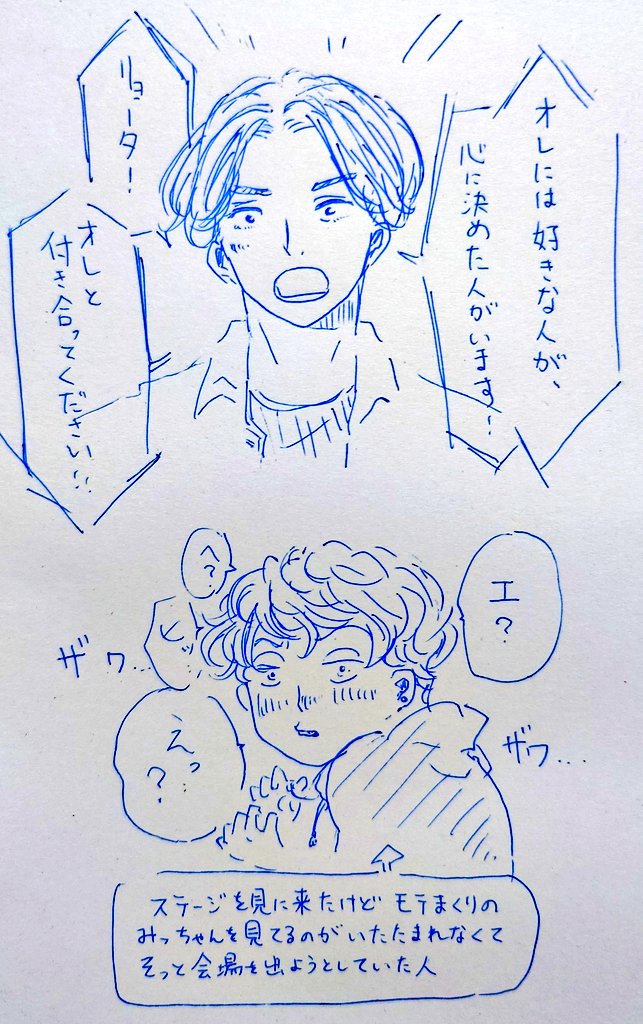 オレには好きな人が、
心に決めた人がいます!
リョータ!
オレと
付き合ってください!!
エ?
へ?
ヒッ
ザワ…
えっ
?
ザワ…
ステージを見に来たけど モテまくりの
みっちゃんを見てるのがいたたまれなくて
そっと会場を出ようとしていた人